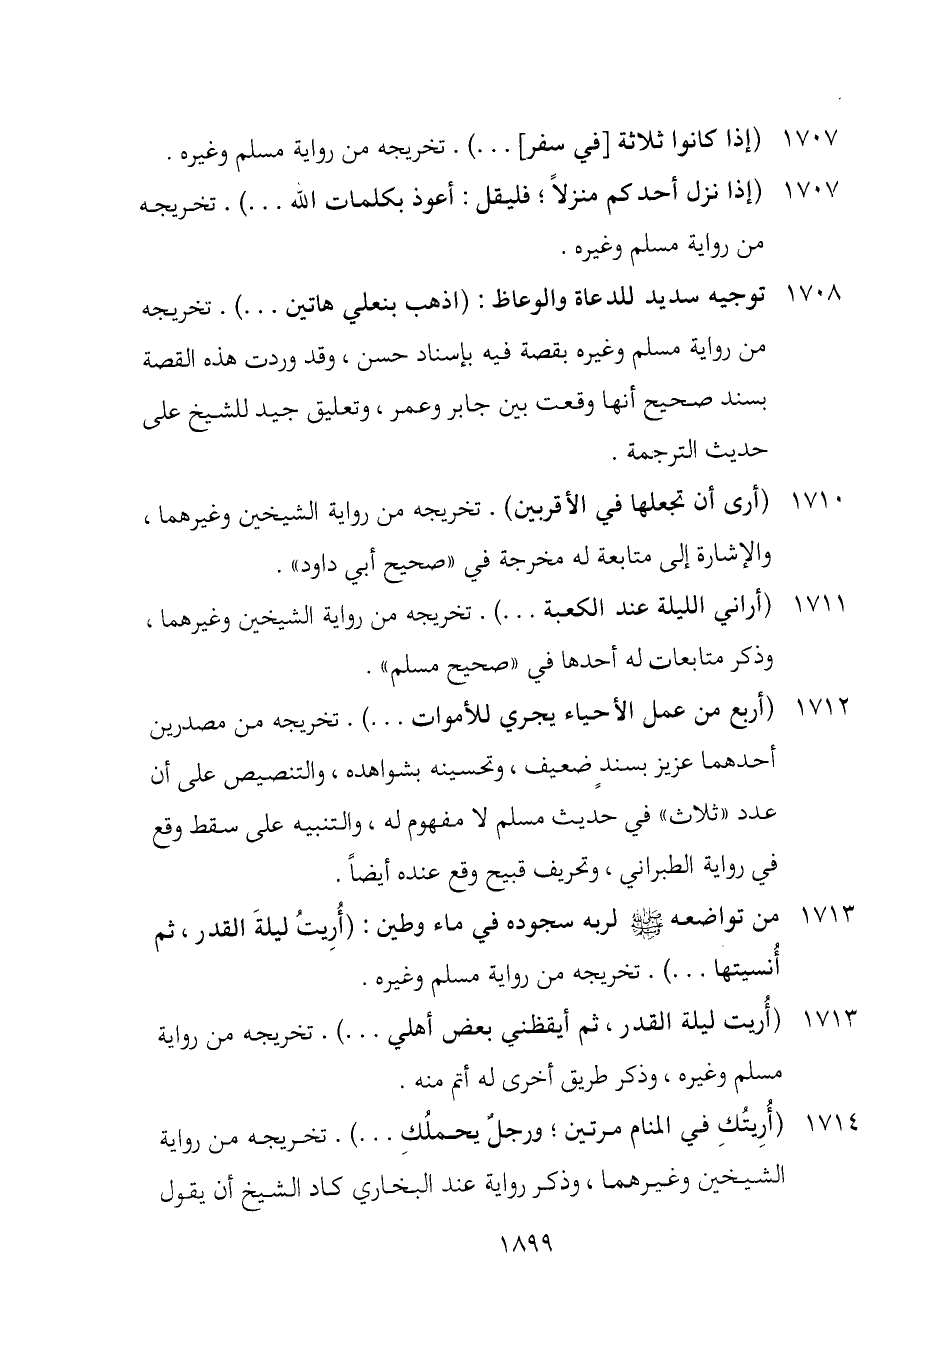 ١٧٠٧ (إذا كانوا ثلاثة [في سفر] . . .) . تخريجه من رواية مسلم وغيره .
١٧٠٧ (إذا نزل أحدكم منزلاً ؛ فليقل : أعوذ بكلمات الله . . .) . تخريجه
من رواية مسلم وغيره .
١٧٠٨ توجيه سديد للدعاة والوعاظ : (اذهب بنعلي هاتين . . .) . تخريجه
من رواية مسلم وغيره بقصة فيه بإسناد حسن ، وقد وردت هذه القصة
بسند صحيح أنها وقعت بين جابر وعمر ، وتعليق جيد للشيخ على
حديث الترجمة .
١٧١٠ (أرى أن تجعلها في الأقربين) . تخريجه من رواية الشيخين وغيرهما ،
والإشارة إلى متابعة له مخرجة في «صحيح أبي داود» .
١٧١١ (أراني الليلة عند الكعبة . . .) . تخريجه من رواية الشيخين وغيرهما ،
وذكر متابعات له أحدها في «صحيح مسلم» .
١٧١٢ (أربع من عمل الأحياء يجري للأموات . . .) . تخريجه من مصدرين
أحدهما عزيز بسندٍ ضعيف ، وتحسينه بشواهده ، والتنصيص على أن
عدد «ثلاث» في حديث مسلم لا مفهوم له ، والتنبيه على سقط وقع
في رواية الطبراني ، وتحريف قبيح وقع عنده أيضاً .
١٧١٣ من تواضعه ﷺ لربه سجوده في ماء وطين : (أُريتُ ليلةَ القدر ، ثم
أُنسيتها . . .) . تخريجه من رواية مسلم وغيره .
١٧١٣ (أُريت ليلة القدر ، ثم أيقظني بعض أهلي . . .) . تخريجه من رواية
مسلم وغيره ، وذكر طريق أخرى له أتم منه .
١٧١٤ (أُرِيتُكِ في المنام مرتين ؛ ورجلٌ يحملُكِ . . .) . تخريجه من رواية
الشيخين وغيرهما ، وذكر رواية عند البخاري كاد الشيخ أن يقول
١٨٩٩